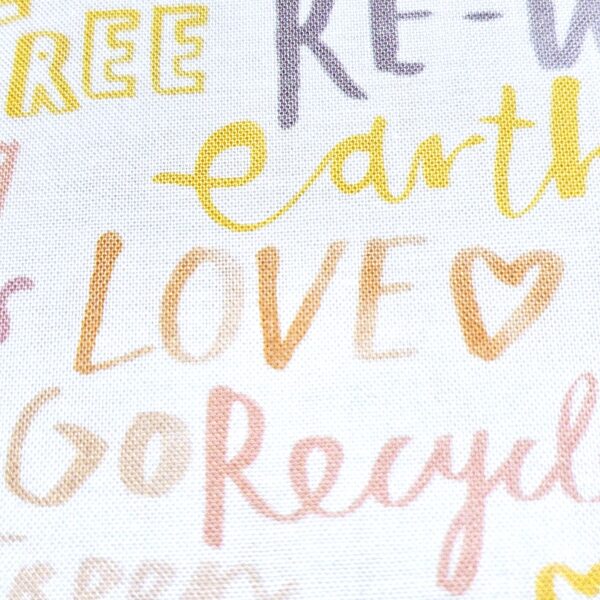 REE RE-W
earth
LOVE
GO Recycl